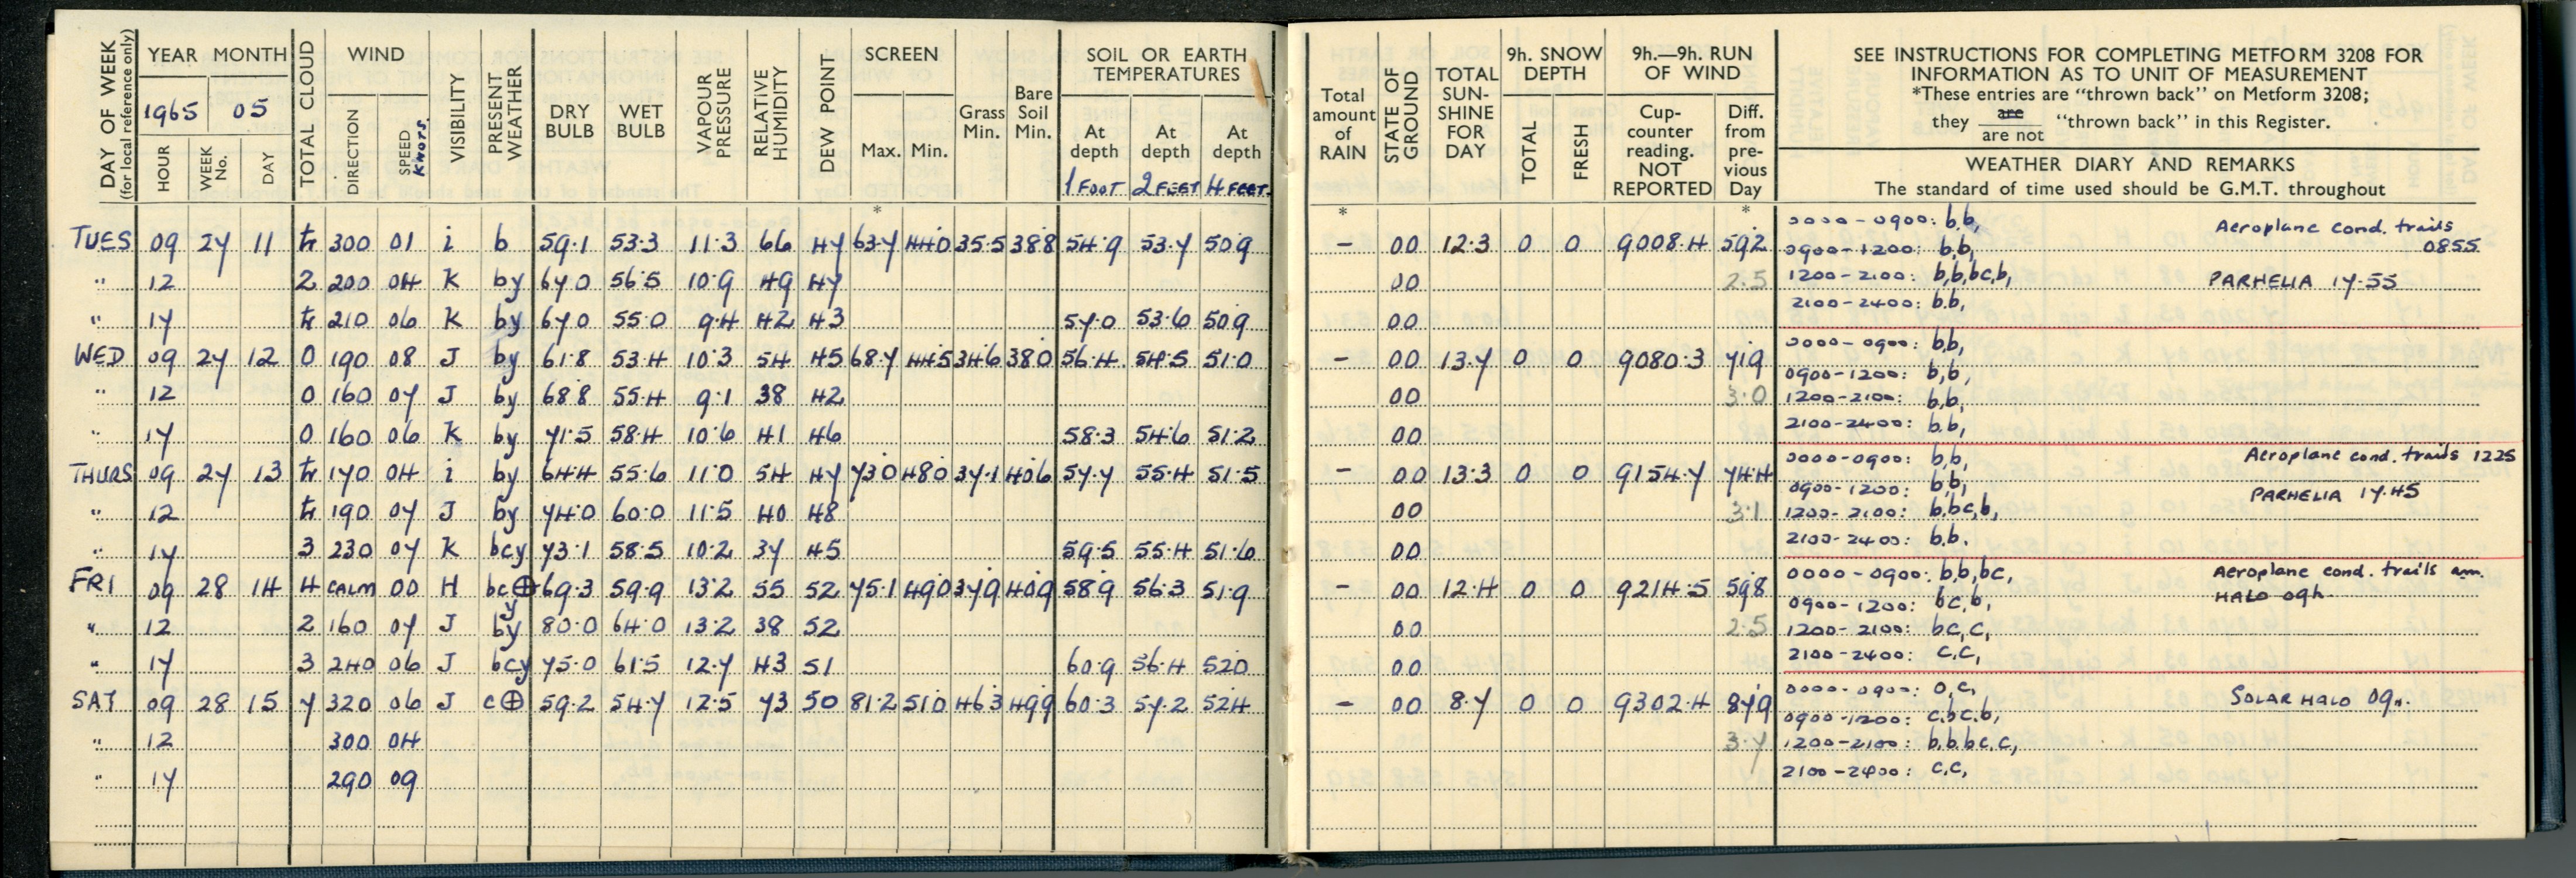 DAY OF WEEK (for local reference only) YEAR MONTH TOTAL CLOUD WIND VISIBILITY PRESENT WEATHER DRY BULB WET BULB VAPOUR PRESSURE RELATIVE HUMIDITY DEW POINT SCREEN Grass Min. Bare Soil Min. SOIL OR EARTH TEMPERATURES
1965 05
HOUR WEEK No. DAY DIRECTION SPEED KNOTS. Max. Min. At depth 1 FOOT At depth 2 FEET At depth 4 FEET.
*
TUES 09 27 11 tr 300 01 i b 59.1 53.3 11.3 66 47 63.7 44.0 35.5 38.8 54.9 53.7 50.9
" 12 2 200 04 K by 67.0 56.5 10.9 49 47
" 17 tr 210 06 K by 67.0 55.0 9.4 42 43 57.0 53.6 50.9
WED 09 27 12 0 190 08 J by 61.8 53.4 10.3 54 45 68.7 44.5 34.6 38.0 56.4 54.5 51.0
" 12 0 160 07 J by 68.8 55.4 9.1 38 42
" 17 0 160 06 K by 71.5 58.4 10.6 41 46 58.3 54.6 51.2
THURS 09 27 13 tr 170 04 i by 64.4 55.6 11.0 54 47 73.0 48.0 37.1 40.6 57.7 55.4 51.5
" 12 tr 190 07 J by 74.0 60.0 11.5 40 48
" 17 3 230 07 K bcy 73.1 58.5 10.2 37 45 59.5 55.4 51.6
FRI 09 28 14 4 CALM 00 H bc⊕y 69.3 59.9 13.2 55 52 75.1 49.0 37.9 40.9 58.9 56.3 51.9
" 12 2 160 07 J by 80.0 64.0 13.2 38 52
" 17 3 240 06 J bcy 75.0 61.5 12.7 43 51 60.9 56.4 52.0
SAT 09 28 15 7 320 06 J c⊕ 59.2 54.7 12.5 73 50 81.2 51.0 46.3 49.9 60.3 57.2 52.4
" 12 300 04
" 17 290 09
Total amount of RAIN STATE OF GROUND TOTAL SUN-SHINE FOR DAY 9h. SNOW DEPTH TOTAL FRESH 9h.—9h. RUN OF WIND Cup-counter reading. NOT REPORTED Diff. from pre-vious Day
SEE INSTRUCTIONS FOR COMPLETING METFORM 3208 FOR
INFORMATION AS TO UNIT OF MEASUREMENT
*These entries are "thrown back" on Metform 3208;
they are / are not "thrown back" in this Register.
WEATHER DIARY AND REMARKS
The standard of time used should be G.M.T. throughout
* *
– 00 12.3 0 0 9008.4 59.2
00 2.5
00
– 00 13.7 0 0 9080.3 71.9
00 3.0
00
– 00 13.3 0 0 9154.7 74.4
00 3.1
00
– 00 12.4 0 0 9214.5 59.8
00 2.5
00
– 00 8.7 0 0 9302.4 87.9
3.7
0000 - 0900: b,b, Aeroplane cond. trails
0900-1200: b,b, 0855
1200-2100: b,b,bc,b, PARHELIA 17.55
2100-2400: b,b,
0000 - 0900: b,b,
0900-1200: b,b,
1200-2100: b,b,
2100-2400: b,b,
0000-0900: b,b, Aeroplane cond. trails 1225
0900-1200: b,b, PARHELIA 17.45
1200-2100: b,bc,b,
2100-2400: b,b.
0000-0900: b,b,bc, Aeroplane cond. trails am.
0900-1200: bc,b, HALO 09h
1200-2100: bc,c,
2100-2400: c,c,
0000-0900: o,c, SOLAR HALO 09h.
0900-1200: c,bc,b,
1200-2100: b,b,bc,c,
2100-2400: c,c,